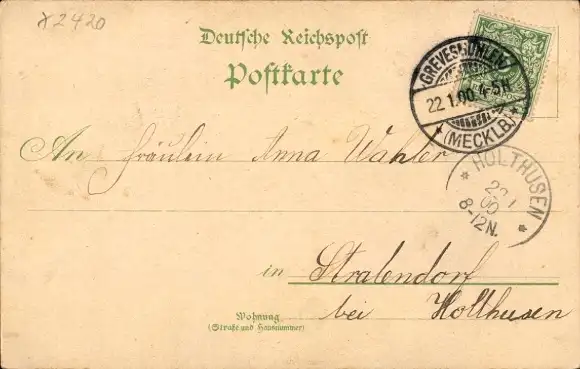 x2420
Deutsche Reichspost
Postkarte
GREVESMÜHLEN
22.1.00. 4-5N
* (MECKLB) *
An Fräulein Anna Wahler
* HOLTHUSEN *
00
8-12N.
in Stralendorf
bei Holthusen
Wohnung
(Straße und Hausnummer)